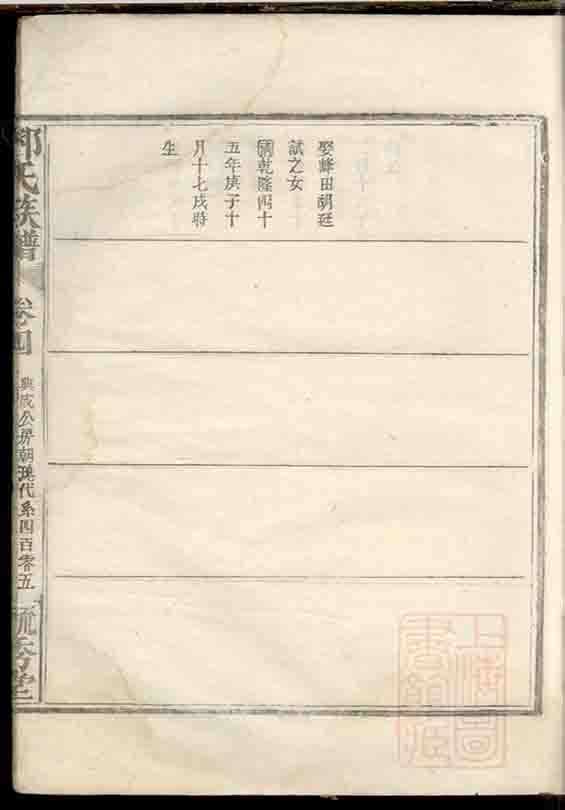 娶峰田胡廷
試之女
國乾隆四十
五年庚子十
月十七戌時
生
氏族譜
卷四
興成公房朝璞代系四百零五
流秀堂
上海圖書館藏